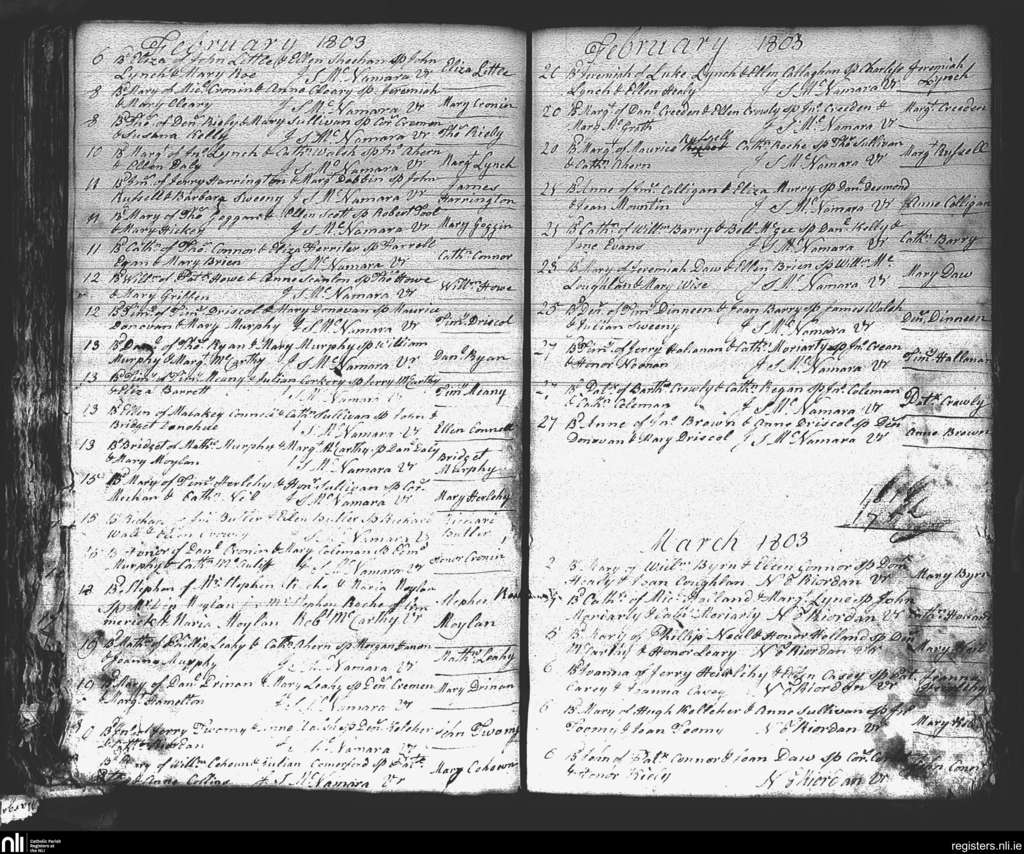 February 1803
6 Bd Eliza of John Little & Ellen Sheehan Sp John
Lynch & Mary Roe J S McNamara Vr Eliza Little
8 Bd Mary of Micl Cronin & Anne Cleary Sp Jeremiah
& Mary Cleary J S McNamara Vr Mary Cronin
8 Bd Thos of Denl Riely & Mary Sullivan Sp Cor Cremen
& Susana Kelly J S McNamara Vr Thos Rielly
10 Bd Margt of Jno Lynch & Cathe Walsh Sp Jno Ahern
& Ellen Daly J S McNamara Vr Margt Lynch
11 Bd Jms of Jerry Harrington & Margt Dobbin Sp John
Russell & Barbara Sweeny J S McNamara Vr James Harrington
11 Bd Mary of Thos Foggan & Ellen Scot Sp Robert Tool
& Mary Hickey J S McNamara Vr Mary Foggin
11 Bd Cathe of Thos Connor & Eliza Ferriter Sp Farrell
Egan & Mary Brien J S McNamara Vr Cathe Connor
12 Bd Willm of Patk Howe & Anne Scanlon Sp Thos Howe
& Mary Griffen J S McNamara Vr Willm Howe
12 Bd Timy of Timy Driscol & Mary Donovan Sp Maurice
Donovan & Mary Murphy J S McNamara Vr Timy Driscol
13 Bd Danl of Thos Ryan & Mary Murphy Sp William
Murphy & Margt McCarthy J S McNamara Vr Danl Ryan
13 Bd Timy of Timy Meany & Julian Corkery Sp Jerry McCarthy
& Eliza Barrett J S McNamara Vr Timy Meany
13 Bd Ellen of Connell & Cathe Sullivan Sp John &
Bridget Donohue J S McNamara Vr Ellen Connell
13 Bd Bridget of Mathw Murphy & Margt McCarthy Sp Dan Daly
& Mary Moylan J S McNamara Vr Bridget Murphy
15 Bd Mary of Timy Herlehy & Honr Sullivan Sp Cor
Meehan & Cathe Neil J S McNamara Vr Mary Herlehy
15 Bd Richard of Butler & Ellen Butler Sp Richard
& Ellen J S McNamara Vr Richard Butler
16 Bd Honor of Danl Cronin & Mary Coleman Sp Edmd
Murphy & Cathe McAuliff J S McNamara Vr Honor Cronin
Bd Stephen of Mr Stephen Roche & Maria Moylan
Sp Mr Den Moylan for Mr Stephen Roche of Lim
merick & Maria Moylan Robt McCarthy Vr Stephen Roche Moylan
19 Bd Mathw of Phillip Leahy & Cathe Ahern Sp Morgan
& Joanna Murphy J S McNamara Vr Mathw Leahy
19 Bd Mary of Danl Drinan & Mary Leahy Sp Denl Cremen
& Margt Hamelton J S McNamara Vr Mary Drinan
Bd Jno of Jerry Twomy & Anne Sp Denl Keleher
J S McNamara Vr John Twomy
Bd Mary of Willm Cohown & Julian Comerford Sp
Collins J S McNamara Vr Mary Cohown
February 1803
20 Bd Jeremiah of Luke Lynch & Ellen Callaghan Sp Charles
Lynch & Ellen Healy J S McNamara Vr Jeremiah Lynch
20 Bd Margt of Danl Creeden & Ellen Crowly Sp Jno Creeden &
Mary McGrath J S McNamara Vr Margt Creeden
20 Bd Margt of Maurice Russell Cathe Roche Sp Thos Sullivan
& Cathe Ahern J S McNamara Vr Margt Russell
21 Bd Anne of Jms Colligan & Eliza Murry Sp Danl Desmond
& Joan Mountin J S McNamara Vr Anne Colligan
21 Bd Cathe of Willm Barry & Bell McGee Sp Danl Kelly &
Jane Evans J S McNamara Vr Cathe Barry
23 Bd Mary of Jeremiah Daw & Ellen Brien Sp Willm Mc
Loughlan & Mary Wise J S McNamara Vr Mary Daw
25 Bd Denl of Timy Dinneen & Joan Barry Sp James Walsh
& Julian Sweeny J S McNamara Vr Denl Dinneen
27 Bd Timy of Jerry Halanan & Cathe Moriarty Sp Jno Crean
& Honor Noonan J S McNamara Vr Timy Hallanan
27 Bd Patk of Barthw Crowly & Cathe Regan Sp Jno Coleman
& Cathe Coleman J S McNamara Vr Patk Crowly
27 Bd Anne of Jno Brown & Anne Driscol Sp Den
Donovan & Mary Driscol J S McNamara Vr Anne Brown
March 1803
2 Bd Mary of Willm Byrn & Ellen Connor Sp
Healy & Joan Coughlan N O Riordan Vr Mary Byrn
Bd Cathe of Micl Holland & Margt Lyne Sp John
Moriarty & Cathe Moriarty N O Riordan Vr Cathe Holland
5 Bd Mary of Phillip Neil & Honor Holland Sp Denl
McCarthy & Honor Leary N O Riordan Vr Mary Neil
6 Bd Joanna of Jerry Herlihy & Ellen Casey Sp Pat
Carey & Joanna Carey N O Riordan Vr Joanna Herlihy
6 Bd Mary of Hugh Kelleher & Anne Sullivan Sp
Toomy & Joan Toomy N O Riordan Vr Mary
6 Bd John of Patk Connor & Joan Daw Sp Cor
& Honor Riely N O Riordan Vr John Connor
nli
Catholic Parish
Registers at
the NLI
registers.nli.ie